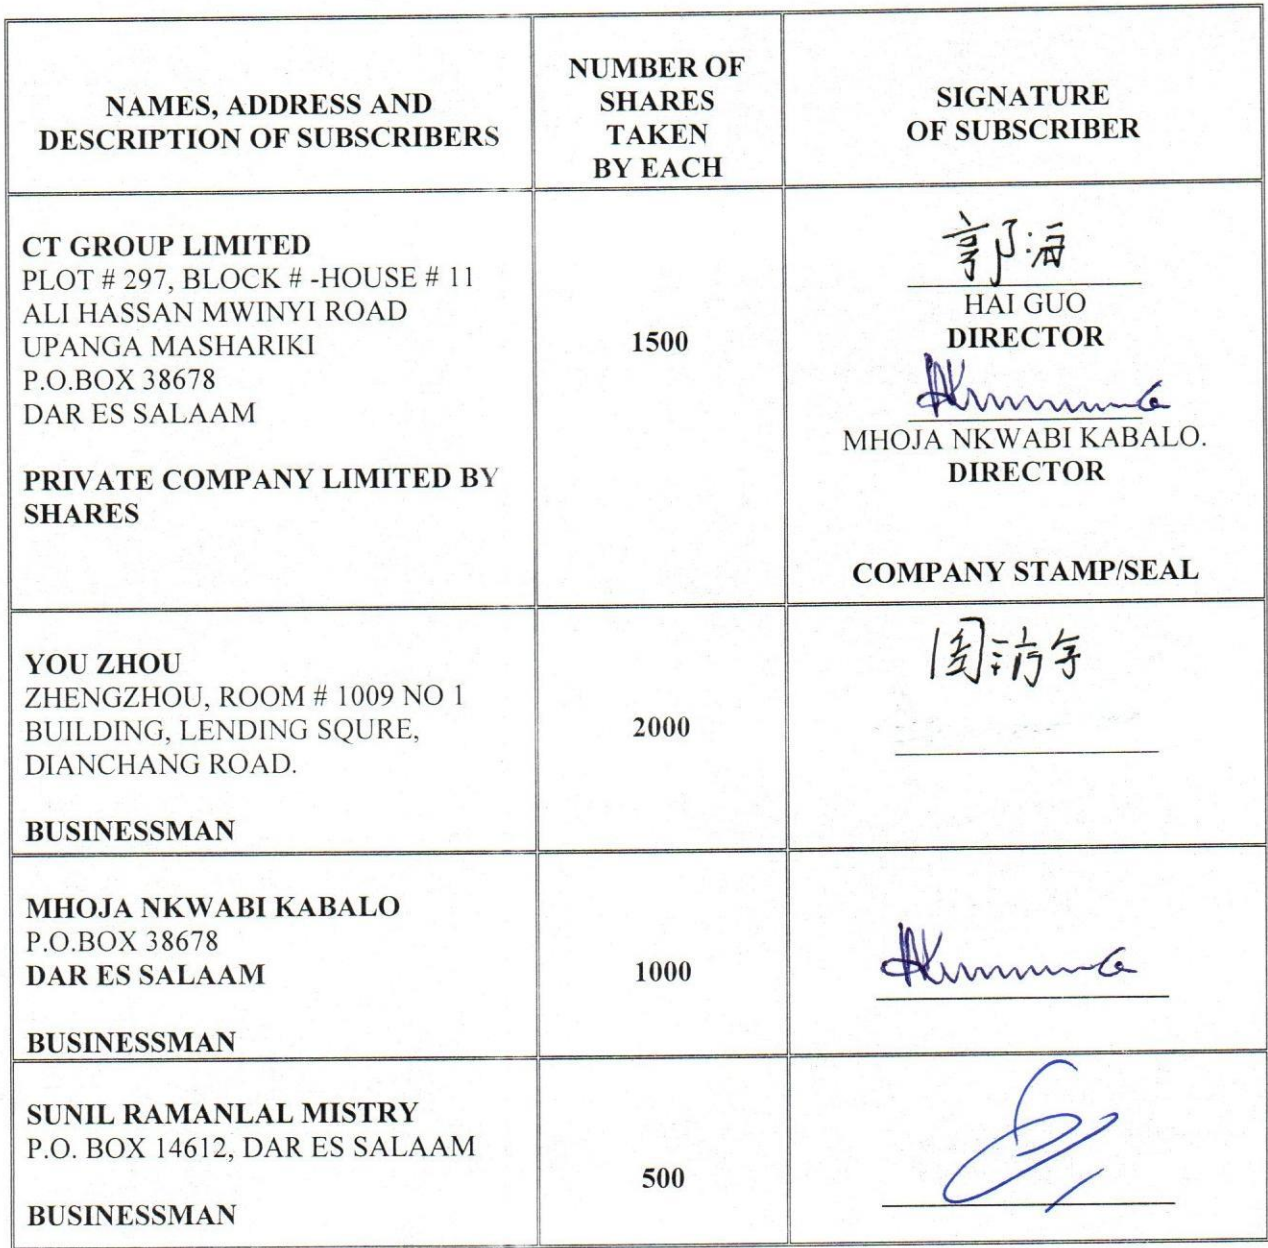 NAMES, ADDRESS AND
DESCRIPTION OF SUBSCRIBERS
NUMBER OF
SHARES
TAKEN
BY EACH
SIGNATURE
OF SUBSCRIBER
CT GROUP LIMITED
PLOT # 297, BLOCK # -HOUSE # 11
ALI HASSAN MWINYI ROAD
UPANGA MASHARIKI
P.O.BOX 38678
DAR ES SALAAM
PRIVATE COMPANY LIMITED BY
SHARES
1500
郭海
HAI GUO
DIRECTOR
MHOJA NKWABI KABALO.
DIRECTOR
COMPANY STAMP/SEAL
YOU ZHOU
ZHENGZHOU, ROOM # 1009 NO 1
BUILDING, LENDING SQURE,
DIANCHANG ROAD.
BUSINESSMAN
2000
MHOJA NKWABI KABALO
P.O.BOX 38678
DAR ES SALAAM
BUSINESSMAN
1000
SUNIL RAMANLAL MISTRY
P.O. BOX 14612, DAR ES SALAAM
BUSINESSMAN
500